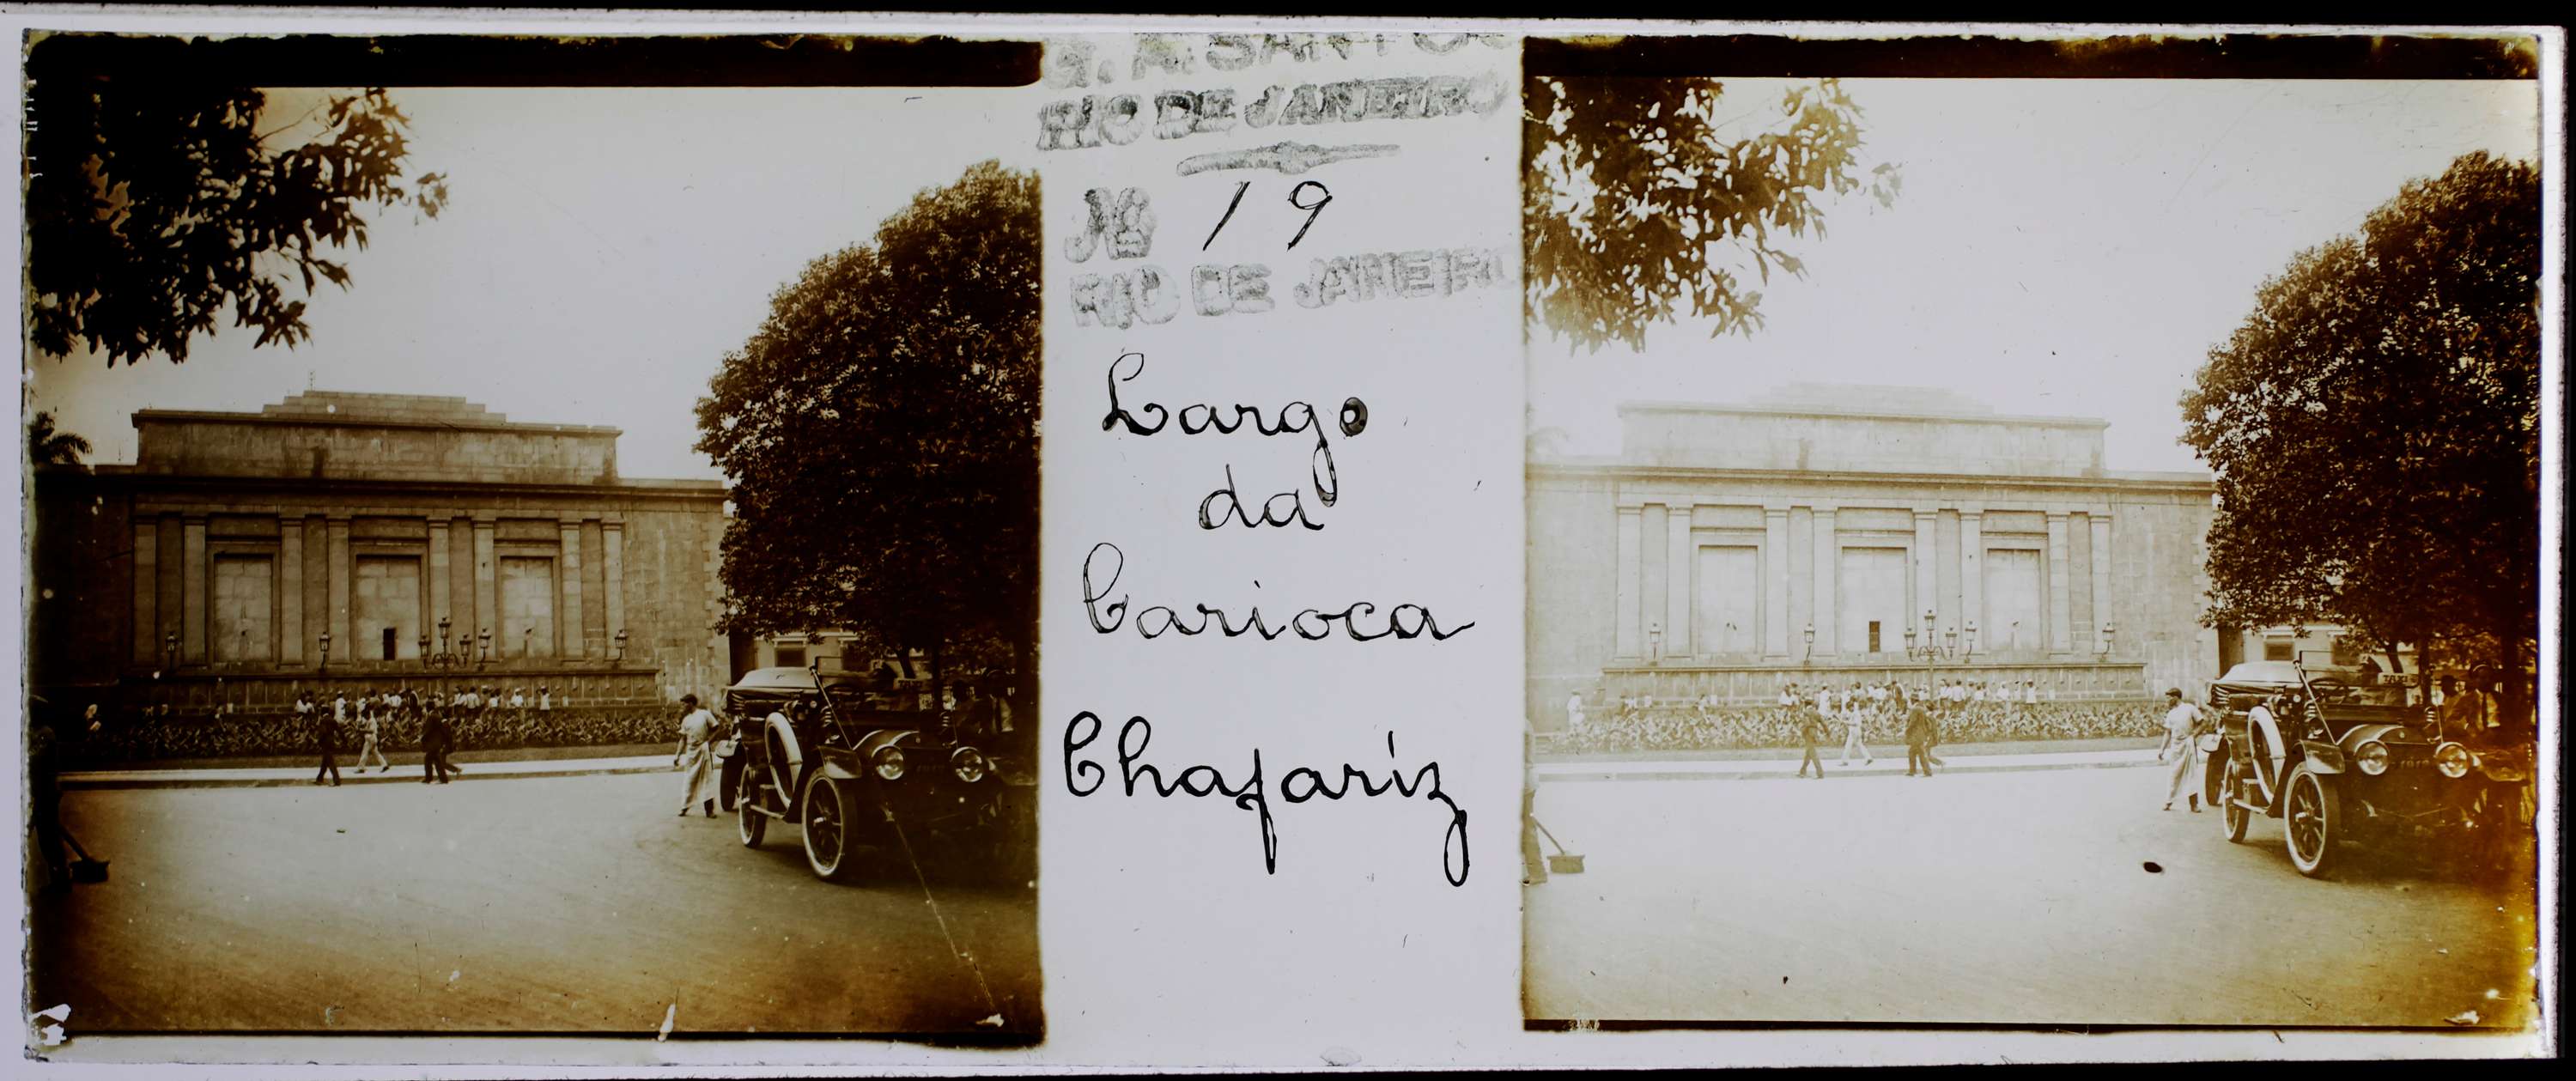 G. A. SANTOS
RIO DE JANEIRO
Nº 19
RIO DE JANEIRO
Largo
da
Carioca
Chafariz
TAXI